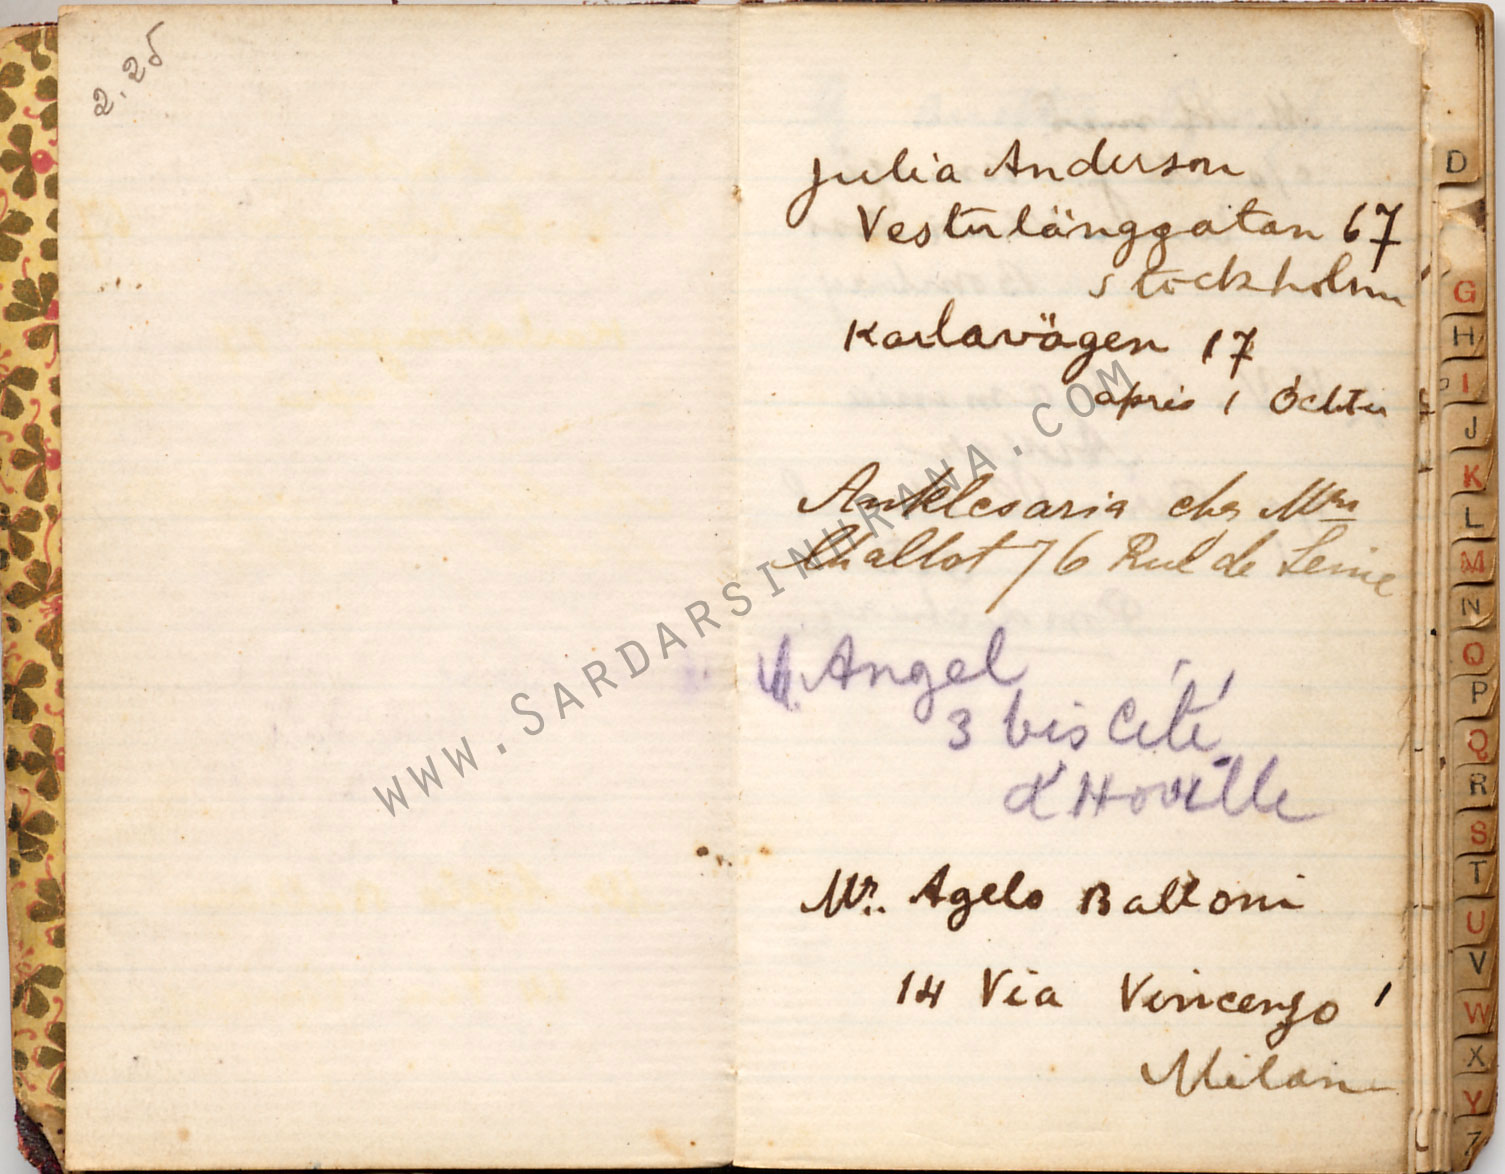 2.25
Julia Anderson
Vesterlänggatan 67
Stockholm
Karlavägen 17
après 1 Octbre
Anklesaria chez Mme
Challot 76 Rue de Seine
M. Angel
3 bis Cité
d'Hoville
Mr. Agelo Battoni
14 Via Vincenzo
Milan
WWW.SARDARSINHRANA.COM
D
G
H
I
J
K
L
M
N
O
P
Q
R
S
T
U
V
W
X
Y
Z